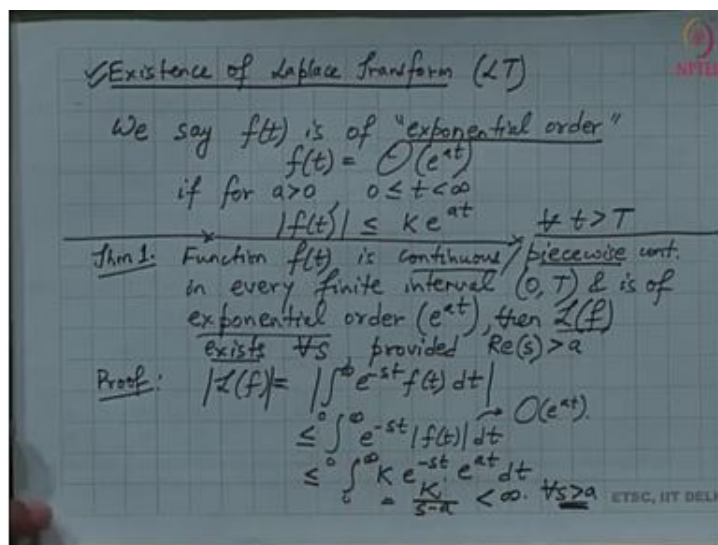 Existence of Laplace Transform (LT)
NPTEL
We say f(t) is of "exponential order"
f(t) = O(e^{at})
if for a>0 0 ≤ t < ∞
|f(t)| ≤ K e^{at} ∀ t>T
Thm 1. Function f(t) is continuous/piecewise cont.
in every finite interval (0, T) & is of
exponential order (e^{at}), then L(f)
exists ∀s, provided Re(s) > a
Proof: |L(f)| = |∫_0^∞ e^{-st} f(t) dt|
≤ ∫_0^∞ e^{-st} |f(t)| dt → O(e^{at}).
≤ ∫_0^∞ K e^{-st} e^{at} dt
= K/(s-a) < ∞. ∀s>a
ETSC, IIT DELH